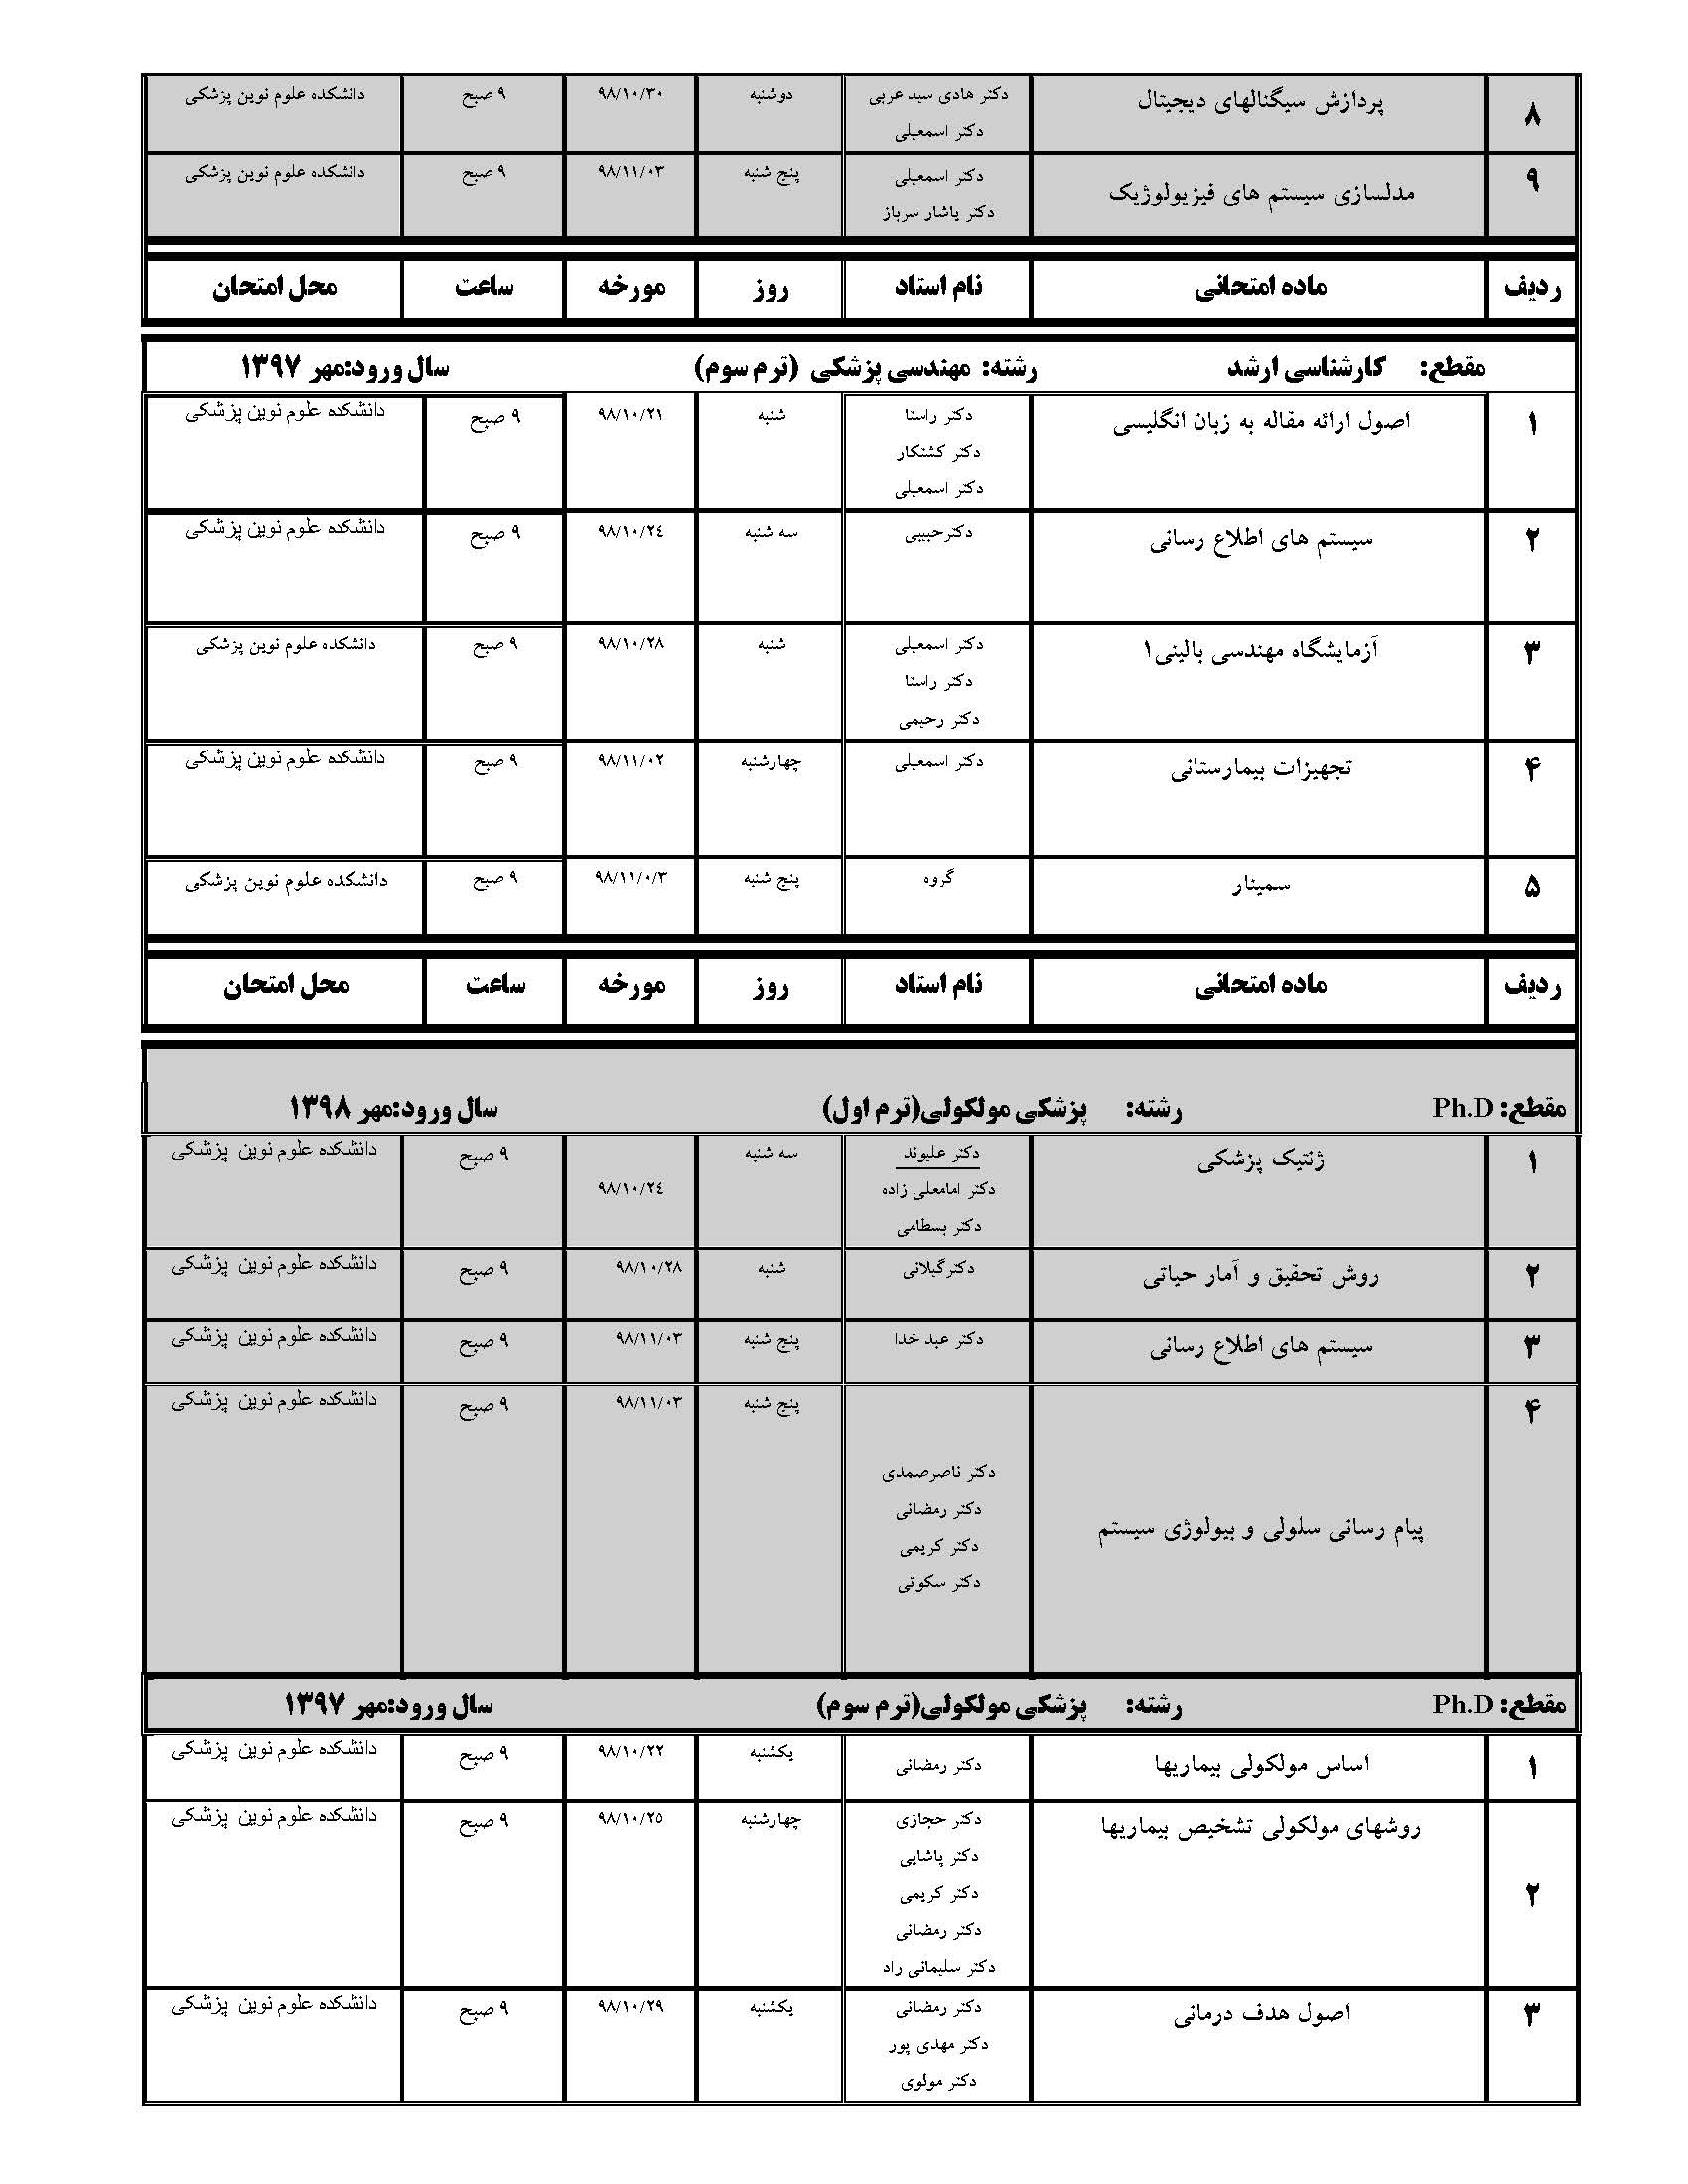 ۸ پردازش سیگنالهای دیجیتال دکتر هادی سید عربی دوشنبه ۹۸/۱۰/۳۰ ۹ صبح دانشکده علوم نوین پزشکی
دکتر اسمعیلی
۹ مدلسازی سیستم های فیزیولوژیک دکتر اسمعیلی پنج شنبه ۹۸/۱۱/۰۳ ۹ صبح دانشکده علوم نوین پزشکی
دکتر یاشار سرباز
ردیف ماده امتحانی نام استاد روز مورخه ساعت محل امتحان
مقطع: کارشناسی ارشد رشته: مهندسی پزشکی (ترم سوم) سال ورود:مهر ۱۳۹۷
۱ اصول ارائه مقاله به زبان انگلیسی دکتر راستا شنبه ۹۸/۱۰/۲۱ ۹ صبح دانشکده علوم نوین پزشکی
دکتر کشتکار
دکتر اسمعیلی
۲ سیستم های اطلاع رسانی دکترحبیبی سه شنبه ۹۸/۱۰/۲٤ ۹ صبح دانشکده علوم نوین پزشکی
۳ آزمایشگاه مهندسی بالینی۱ دکتر اسمعیلی شنبه ۹۸/۱۰/۲۸ ۹ صبح دانشکده علوم نوین پزشکی
دکتر راستا
دکتر رحیمی
۴ تجهیزات بیمارستانی دکتر اسمعیلی چهارشنبه ۹۸/۱۱/۰۲ ۹ صبح دانشکده علوم نوین پزشکی
۵ سمینار گروه پنج شنبه ۹۸/۱۱/۰/۳ ۹ صبح دانشکده علوم نوین پزشکی
ردیف ماده امتحانی نام استاد روز مورخه ساعت محل امتحان
مقطع: Ph.D رشته: پزشکی مولکولی(ترم اول) سال ورود:مهر ۱۳۹۸
۱ ژنتیک پزشکی دکتر علیوند سه شنبه ۹۸/۱۰/۲٤ ۹ صبح دانشکده علوم نوین پزشکی
دکتر امامعلی زاده
دکتر بسطامی
۲ روش تحقیق و آمار حیاتی دکترگیلانی شنبه ۹۸/۱۰/۲۸ ۹ صبح دانشکده علوم نوین پزشکی
۳ سیستم های اطلاع رسانی دکتر عبد خدا پنج شنبه ۹۸/۱۱/۰۳ ۹ صبح دانشکده علوم نوین پزشکی
۴ پیام رسانی سلولی و بیولوژی سیستم دکتر ناصرصمدی پنج شنبه ۹۸/۱۱/۰۳ ۹ صبح دانشکده علوم نوین پزشکی
دکتر رمضانی
دکتر کریمی
دکتر سکوتی
مقطع: Ph.D رشته: پزشکی مولکولی(ترم سوم) سال ورود:مهر ۱۳۹۷
۱ اساس مولکولی بیماریها دکتر رمضانی یکشنبه ۹۸/۱۰/۲۲ ۹ صبح دانشکده علوم نوین پزشکی
۲ روشهای مولکولی تشخیص بیماریها دکتر حجازی چهارشنبه ۹۸/۱۰/۲٥ ۹ صبح دانشکده علوم نوین پزشکی
دکتر پاشایی
دکتر کریمی
دکتر رمضانی
دکتر سلیمانی راد
۳ اصول هدف درمانی دکتر رمضانی یکشنبه ۹۸/۱۰/۲۹ ۹ صبح دانشکده علوم نوین پزشکی
دکتر مهدی پور
دکتر مولوی